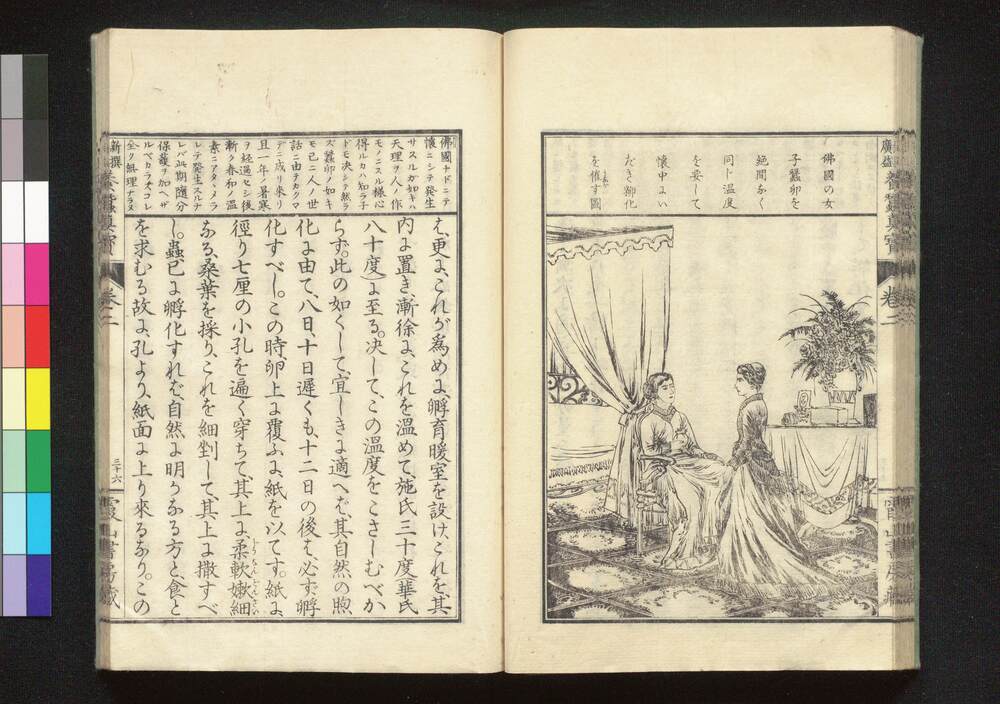 佛國の女
子蠶卵を
絶間なく
同ド温度
を要して
懐中にい
だき孵化
を催す圖
卷二
佛國ナドニテ
懐ニシテ發生
サスルガ如キハ
天理ヲ人ノ作
モノニスル様心
得ルカハ知ラ子
ドモ决シテ然ラ
ズ蠶卵ノ如キ
モ已ニ人ノ世
話ニ由ヲカクマ
デニ成リ來リ
且一年ノ暑寒
ヲ經過セシ後
漸ク春和ノ温
素ニアタヽメラ
レテ發生スルナ
レバ此期隨分
保護ヲ加ヘザ
ルベカラズコレ
全ク無理ナラヌ
は、更に、これが爲めに、孵育暖室を設け、これを、其
内に置き、漸徐に、これを温めて、施氏三十度華氏
八十度)に至る。决して、この温度を、こさしむべか
らず。此の如くして、宜しきに適へば、其自然の煦
化に由て、八日、十日遲くも、十二日の後は、必ず孵
化すべし。この時卵上に覆ふに、紙を以てす。紙に、
徑り七厘の小孔を遍く穿ちて、其上に、柔軟嫩細
なる、桑葉を採り、これを細剉して、其上に撒すべ
し。蟲已に孵化すれば、自然に明かなる方と、食と
を求むる故に、孔より、紙面に上り來るなり。この
新撰
卷二
三十六